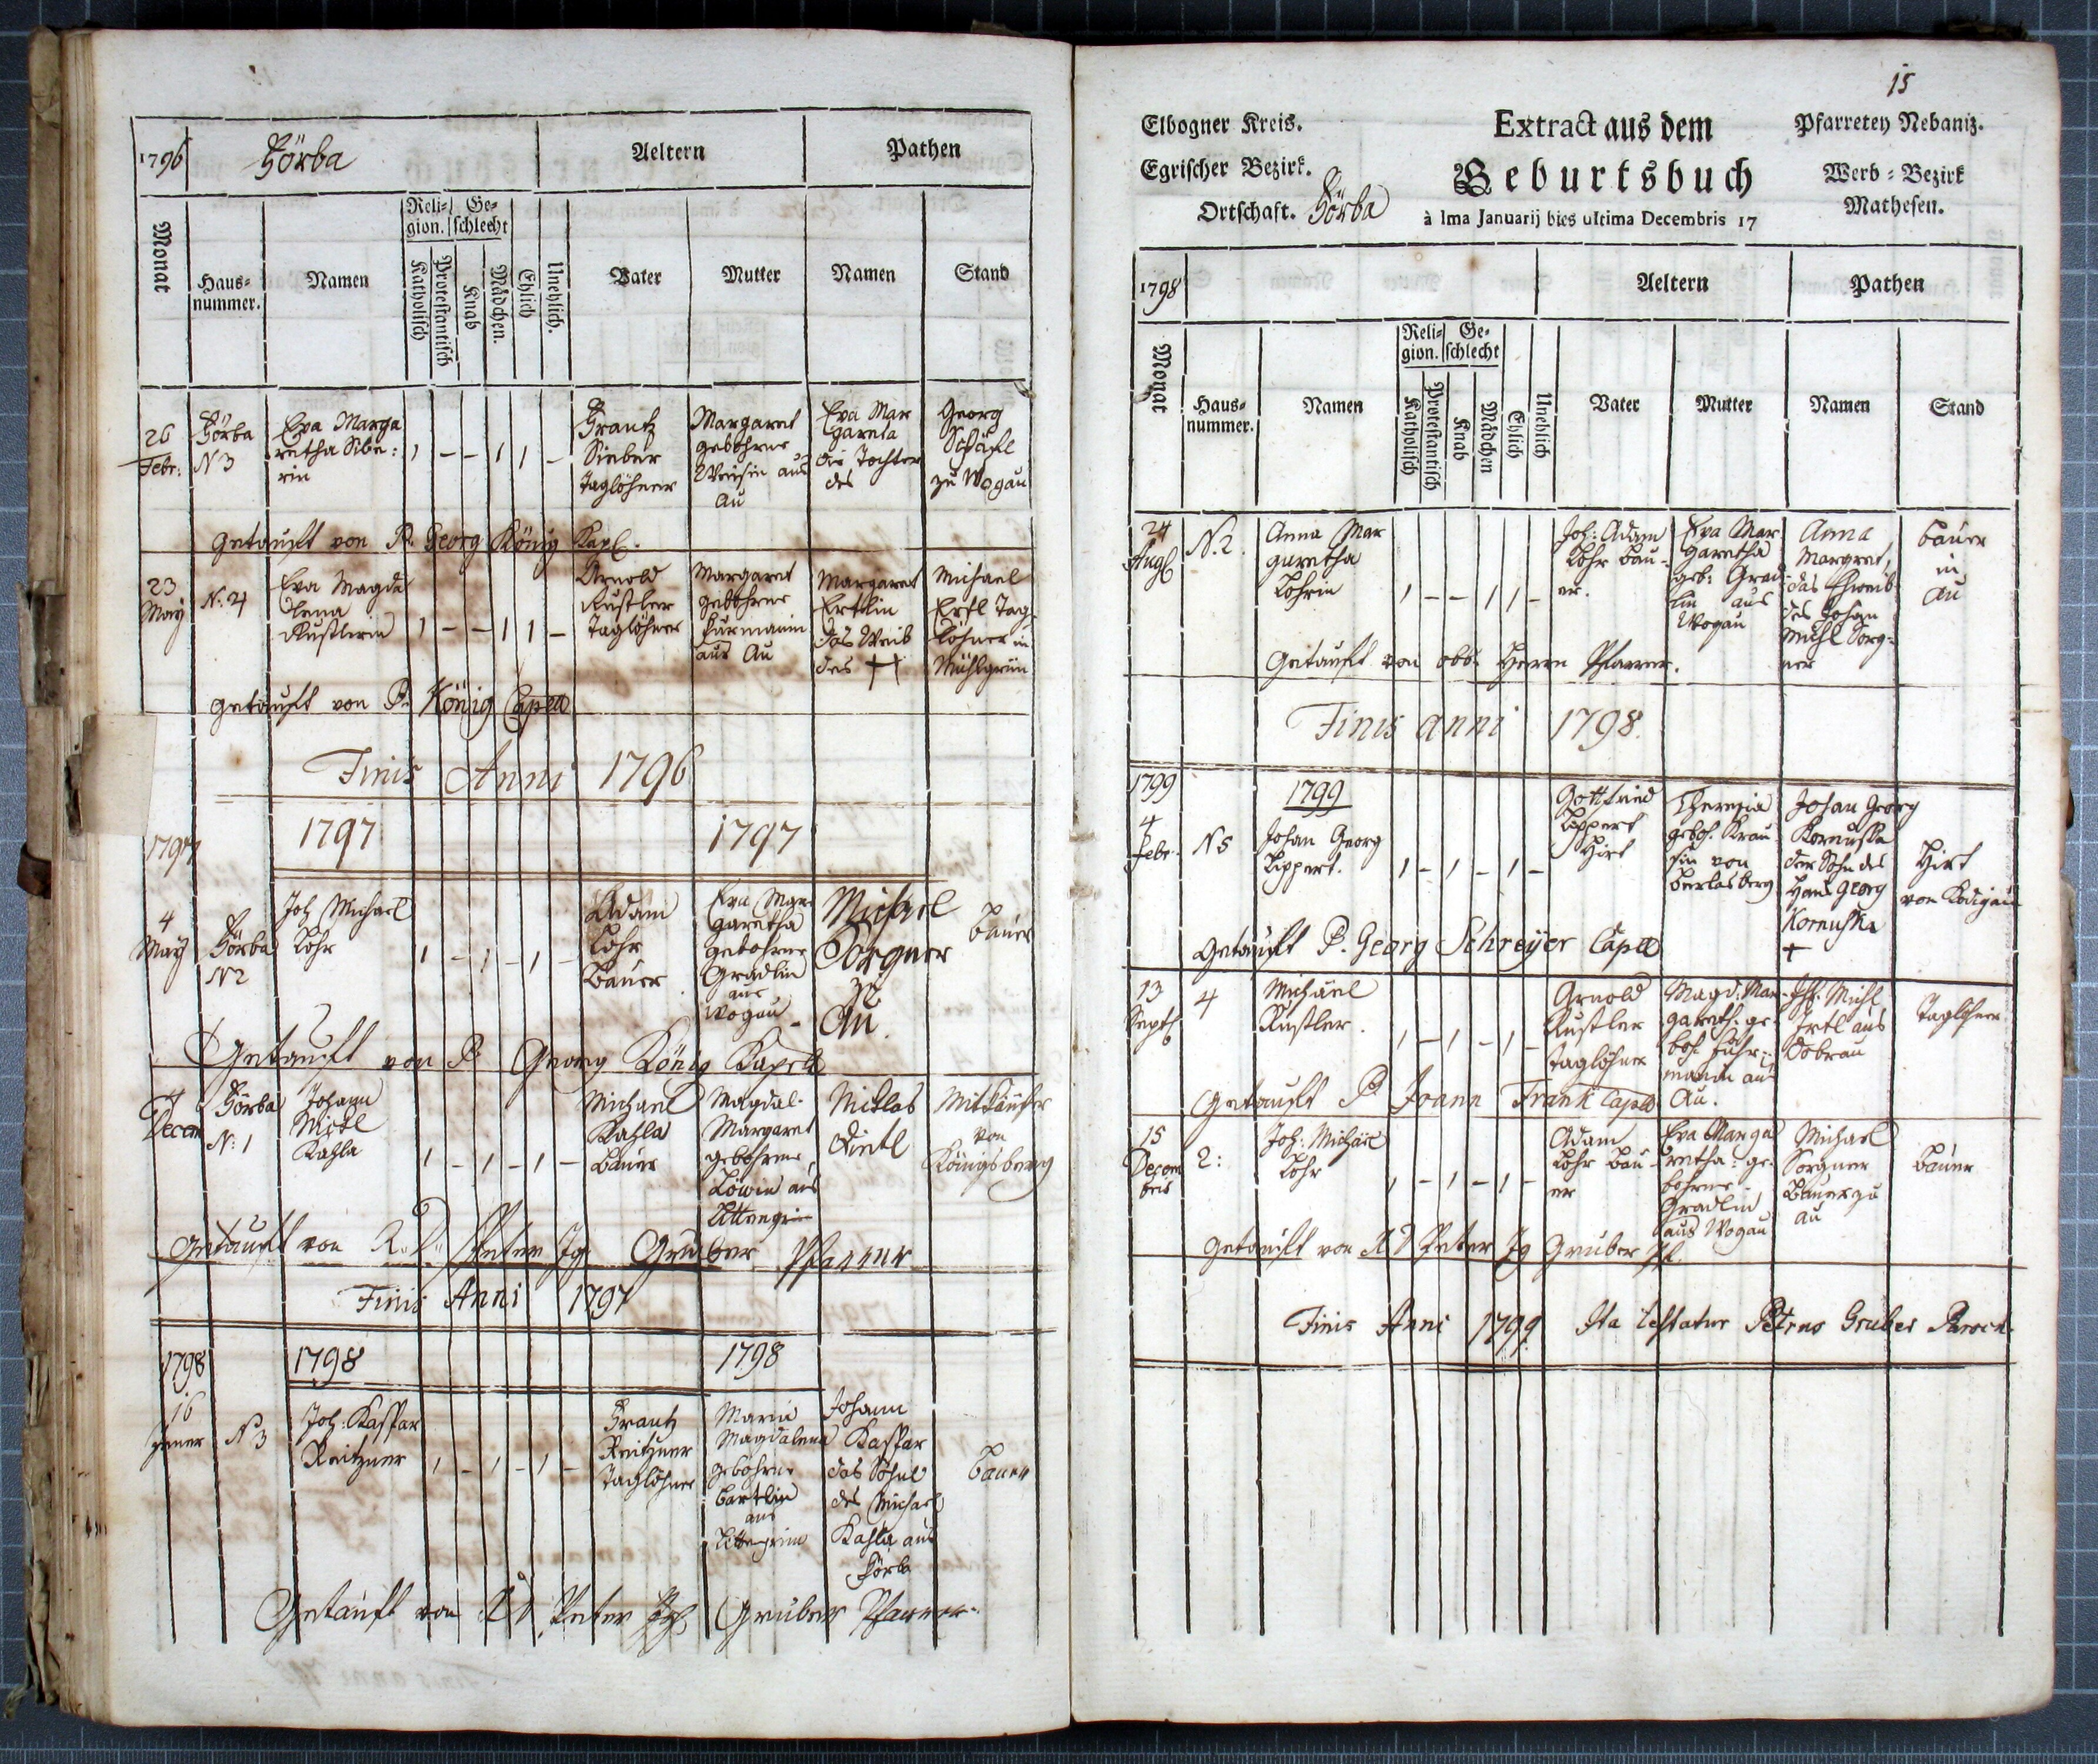 1796 Förba Aeltern Pathen
Monat
Haus=
nummer.
Namen
Reli=
gion.
Ge=
schlecht
Katholisch
Protestantisch
Knab
Mädchen.
Ehlich
Unehlich.
Vater
Mutter
Namen
Stand
26
Febr:
Förba
N 3
Eva Marga
retha Sibe:
rin
1 – – 1 1 –
Frantz
Sieber
Taglöhner
Margaret
gebohrne
aus
Au
Eva Mar
gareta
die Tochter
des
Georg
zu Wogau
Getauft von P. Georg König Kapl.
23
May
N: 4
Eva Magda
lena
Rustlerin
1 – – 1 1 –
Arnold
Rustler
Taglöhner
Margaret
gebohrne
Furmanin
aus Au
Margaret
Ertlin
das Weib
des
Michael
Ertl Tag
löhner in
Mühlgrün
getauft von P. König Capell
Finis Anni 1796
1797 1797 1797
4
May
Förba
N 2
Joh Michael
Lohr
1 – 1 – 1 –
Adam
Lohr
Bauer
Eva Mar
garetha
gebohrne
Gradlin
aus
Wogau
Michael
Sorgner
zu
Au.
Bauer
Getauft von P Georg König Kapell
Decem
Förba
N: 1
Johann
Nickl
Kahla
1 – 1 – 1 –
Michael
Kahla
Bauer
Magdal.
Margaret
gebohrne
Löwin aus
Niklas
Dietl
von
Königsberg
getauft von R. D. Peter Ig. Gruber Pfarrer
Finis Anni 1797
1798 1798 1798
16
Jener
N 3
Joh: Kaspar
Reitzner
1 – 1 – 1 –
Frantz
Reitzner
Taglöhner
Maria
Magdalena
gebohrne
Bartlin
aus
Johann
Kaspar
das Söhnl
des Michael
Kahla aus
Förba
Bauer
Getauft von R D Peter Gruber Pfarrer
15
Elbogner Kreis.
Egrischer Bezirk.
Ortschaft. Förba
Extract aus dem
Geburtsbuch
à Ima Januarij bies ultima Decembris 17
Pfarretey Nebaniz.
Werb = Bezirk
Mathesen.
1798 Aeltern Pathen
Monat
Haus=
nummer.
Namen
Reli=
gion.
Ge=
schlecht
Katholisch
Protestantisch
Knab
Mädchen
Ehlich
Unehlich
Vater
Mutter
Namen
Stand
24
Aug
N. 2.
Anna Mar
garetha
Lohrin
1 – – 1 1 –
Joh: Adam
Lohr Bau-
er.
Eva Mar
garetha
geb: Grad-
lin aus
Wogau
Anna
Margret,
das Eheweib
des Johan
Michl Sorg-
ner
Bauer
in
Au
Getauft von obb. Herrn Pfarrer.
Finis anni 1798.
1799 1799
4
Febr.
N 5
Johan Georg
Lippert.
1 – 1 – 1 –
Gottfried
Lippert
Hirt
Theresia
geboh. Krau
sin von
Johan Georg
der Sohn des
Hans Georg
Hirt
Getauft P. Georg Schreyer Capell
13
Sept
4
Michael
Rustler.
1 – 1 – 1 –
Arnold
Rustler
Taglöhner
Magd. Mar-
gareth. ge-
boh. Fuhr-
manin aus
Au.
Joh. Michl
Irtl aus
Dobrau
Taglöhner
Getauft P Joann Frank Capell
15
Decem
bris
2:
Joh: Michael
Lohr
1 – 1 – 1 –
Adam
Lohr Bau-
er
Eva Marga
retha: ge-
bohrne
Gradlin
aus Wogau
Michael
Sorgner
Bauer zu
Au
Bauer
Getauft von R D Peter Ig Gruber Pf.
Finis Anni 1799. Ita testatur Petrus Gruber Paroch.